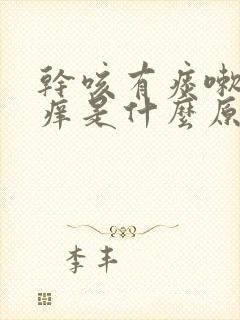 幹咳有痰嗽
痒是什麼原
李丰